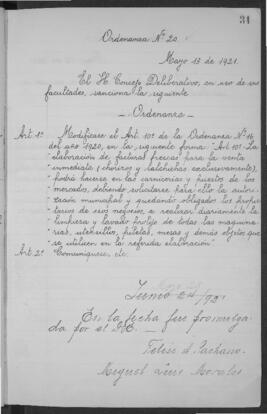 31
Ordenanza Nº 20.
Mayo 13 de 1921.
El H. Concejo Deliberativo, en uso de sus
facultades, sanciona la siguiente
— Ordenanza —
Art. 1º Modifícase el Art. 101 de la Ordenanza Nº 14
del año 1920, en la siguiente forma: "Art. 101. La
elaboración de facturas frescas para la venta
inmediata (chorizos y salchichas exclusivamente),
podrá hacerse en las carnicerías y puestos de los
mercados, debiendo solicitarse para ello la autori-
zación municipal y quedando obligados los propie-
tarios de esos negocios, a realizar diariamente la
limpieza y lavado prolijo de todas las maquina-
rias, utensilios, piletas, mesas y demás objetos que
se utilicen en la referida elaboración"
Art. 2º Comuníquese, etc.
Junio
En la fecha fue promulga-
da por el D.E. —
Miguel